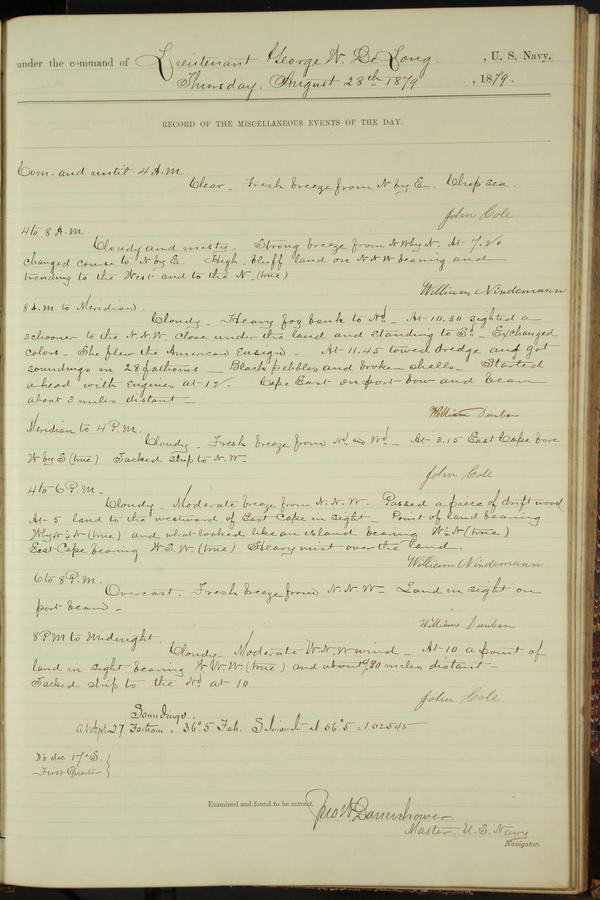 under the command of Lieutenant George W. De Long. , U. S. Navy,
Thursday, August 28th 1879 , 1879.
RECORD OF THE MISCELLANEOUS EVENTS OF THE DAY.
Com. and until 4 A.M.
Clear. Fresh breeze from N by E. Chop sea.
John Cole
4 to 8 A.M.
Cloudy and misty. Strong breeze from NW by N. At 7.20
changed course to N by E. High, bluff land on N N W bearing and
trending to the West and to the N (true)
William Nindemann
8 A.M. to Meridian.
Cloudy – Heavy fog bank to Nd – At 10.30 sighted a
schooner to the N.N.W. close under the land and standing to Sd – Exchanged
colors – She flew the American Ensign – At 11.45 towed dredge and got
soundings in 28 fathoms – Black pebbles and broken shells – Started
ahead with engines at 12. Cape East on port bow and beam
about 3 miles distant –
William Dunbar
Meridian to 4 P.M.
Cloudy – Fresh breeze from Nd and Wd – At 3.15 East Cape bore
W by S (true) Tacked ship to N.W.
John Cole
4 to 6 P.M.
Cloudy. Moderate breeze from N.N.W. Passed a piece of drift wood.
At 5 land to the westward of East Cape in sight. Point of land bearing
W by N ½ N (true) and what looked like an island bearing W ½ N (true)
East Cape bearing W.S.W. (true) Heavy mist over the land.
William Nindemann
6 to 8 P.M.
Overcast. Fresh breeze from N.N.W – Land in sight on
port beam –
William Dunbar
8 P.M to Midnight
Cloudy Moderate N.N.W wind – At 10 a point of
land in sight bearing W.W. (true) and about 20 miles distant –
Tacked ship to the Nd at 10.
John Cole
Soundings.
At 27 Fathom 36°.5 Fah. at 56°.5 = 1.02545
D's dec 17° S.
First Quarter
Examined and found to be correct.
Jno. W. Danenhower
Master. U.S. Navy.
Navigator.